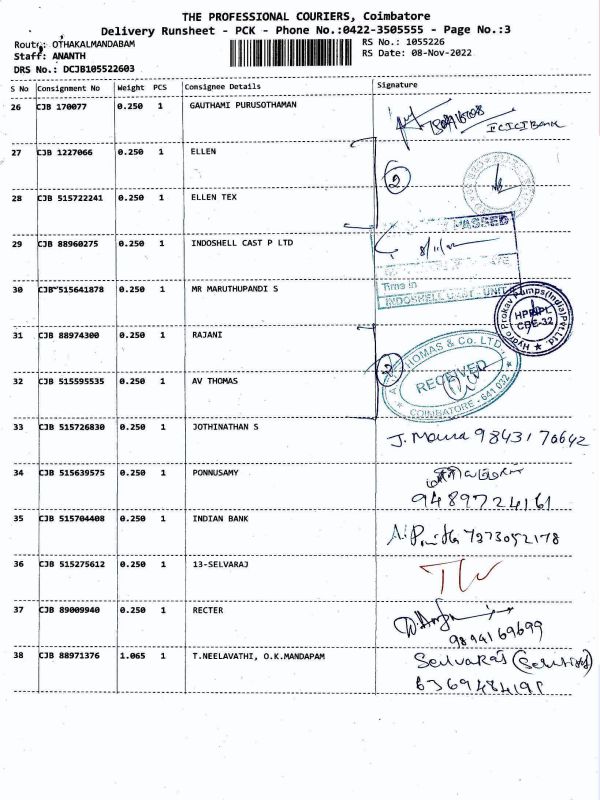 THE PROFESSIONAL COURIERS, Coimbatore
Delivery Runsheet - PCK - Phone No.:0422-3505555 - Page No.:3
Route: OTHAKALMANDABAM
RS No.: 1055226
Staff: ANANTH
RS Date: 08-Nov-2022
DRS No.: DCJB105522603
S No Consignment No Weight PCS Consignee Details Signature
26 CJB 170077 0.250 1 GAUTHAMI PURUSOTHAMAN
ICICI Bank
27 CJB 1227066 0.250 1 ELLEN
2
28 CJB 515722241 0.250 1 ELLEN TEX
PASSED
29 CJB 88960275 0.250 1 INDOSHELL CAST P LTD
8/11/
Time in
30 CJB 515641878 0.250 1 MR MARUTHUPANDI S
INDOSHELL CAST - UNIT
Hydro Prokav Pumps(India)Pvt.Ltd.
HPPIPL
CBE-32
31 CJB 88974300 0.250 1 RAJANI
THOMAS & Co. LTD.
RECEIVED
COIMBATORE - 641 032
2
32 CJB 515595535 0.250 1 AV THOMAS
33 CJB 515726830 0.250 1 JOTHINATHAN S
J. Mouna 9843170642
34 CJB 515639575 0.250 1 PONNUSAMY
9489724161
35 CJB 515704408 0.250 1 INDIAN BANK
7373052178
36 CJB 515275612 0.250 1 13-SELVARAJ
37 CJB 89009940 0.250 1 RECTER
9894169699
38 CJB 88971376 1.065 1 T.NEELAVATHI, O.K.MANDAPAM
Selvaraj